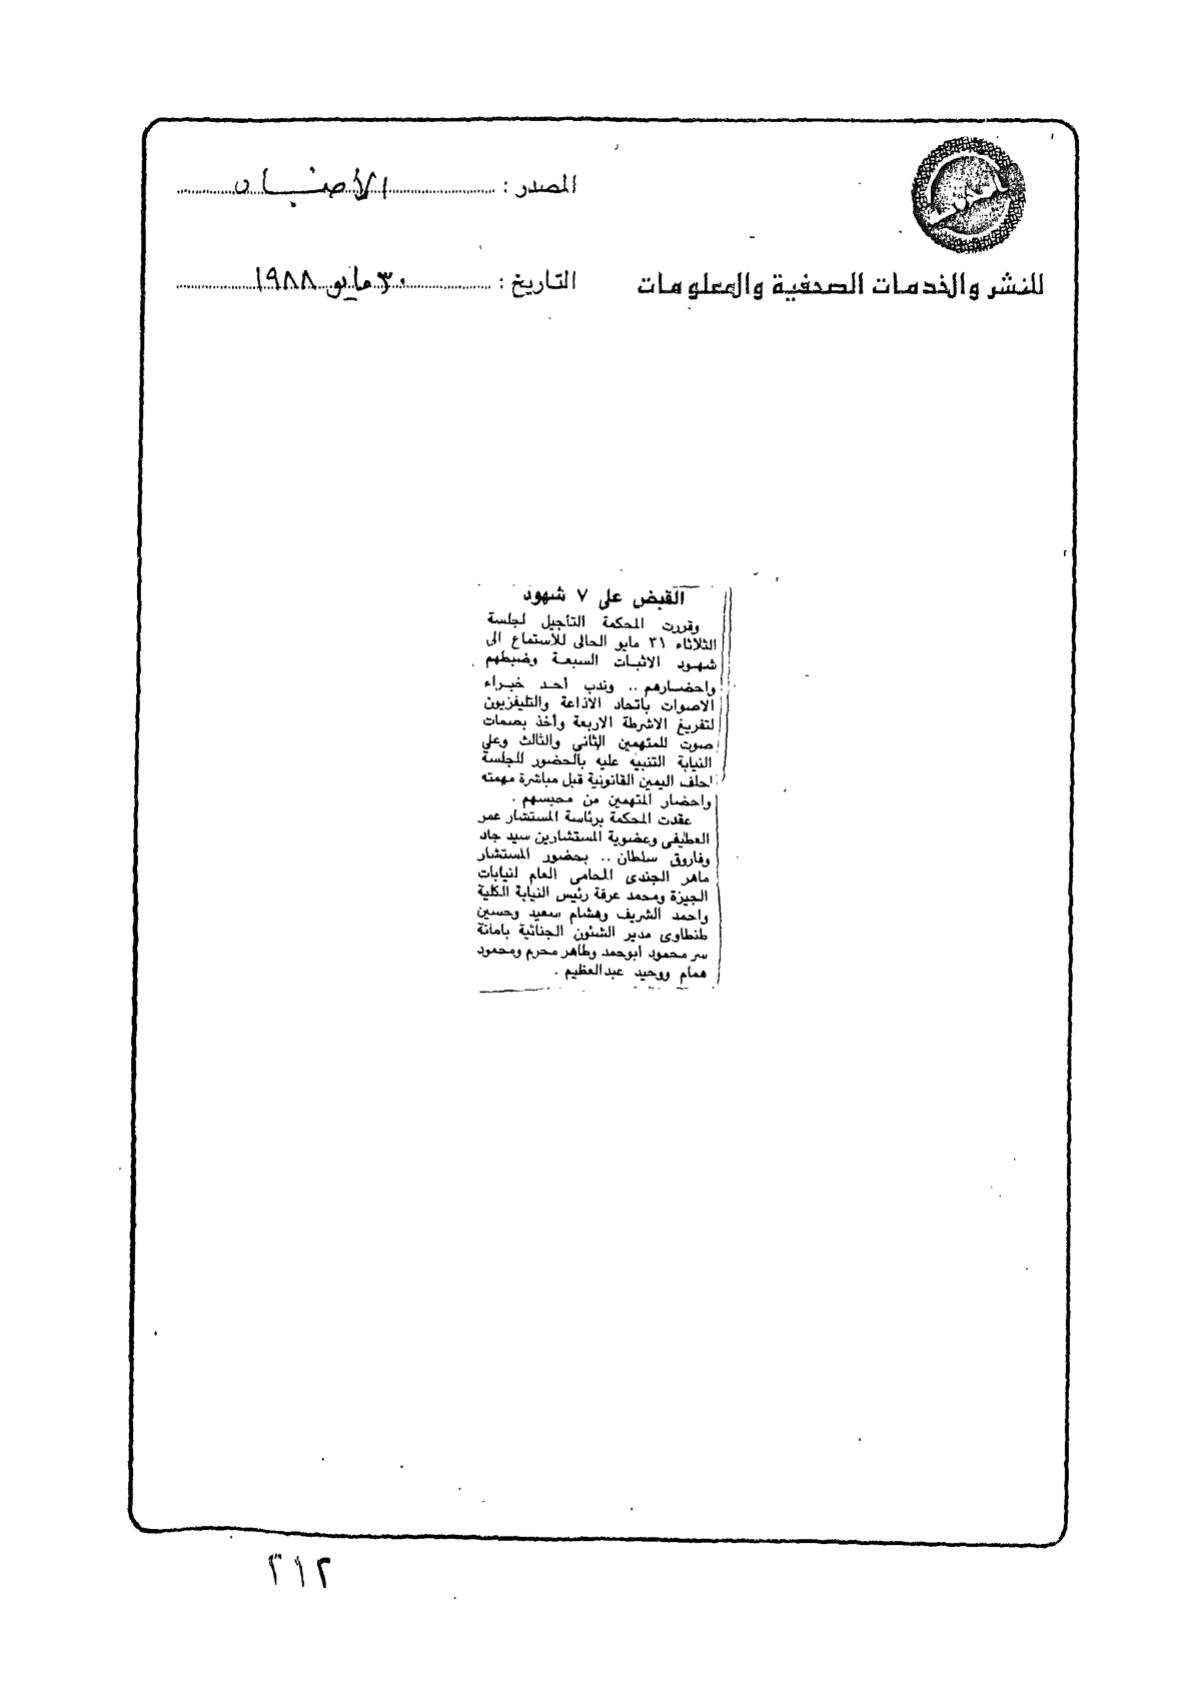 المصدر : الأخبار
للنشر والخدمات الصحفية والمعلومات
التاريخ : ٣٠ مايو ١٩٨٨
القبض على ٧ شهود
وقررت المحكمة التأجيل لجلسة
الثلاثاء ٣١ مايو الحالى للاستماع الى
شهود الاثبات السبعة وضبطهم
واحضارهم .. وندب أحد خبراء
الاصوات باتحاد الاذاعة والتليفزيون
لتفريغ الاشرطة الاربعة وأخذ بصمات
صوت للمتهمين الثانى والثالث وعلى
النيابة التنبيه عليه بالحضور للجلسة
لحلف اليمين القانونية قبل مباشرة مهمته
واحضار المتهمين من محبسهم .
عقدت المحكمة برئاسة المستشار عمر
العطيفى وعضوية المستشارين سيد جاد
وفاروق سلطان .. بحضور المستشار
ماهر الجندى المحامى العام لنيابات
الجيزة ومحمد عرفة رئيس النيابة الكلية
واحمد الشريف وهشام سعيد وحسين
طنطاوى مدير الشئون الجنائية بامانة
سر محمود أبوحمد وطاهر محرم ومحمود
همام ووحيد عبدالعظيم .
٣١٢